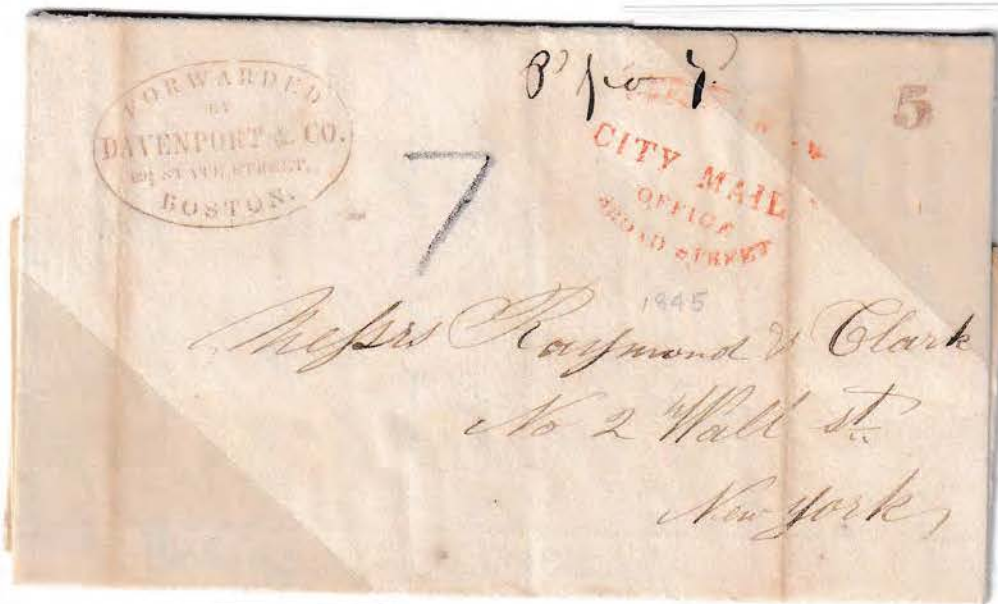 FORWARDED
BY
DAVENPORT & CO.
STATE STREET,
BOSTON.
7
CITY MAIL
OFFICE
BROAD STREET
5
1845
Messrs Raymond & Clark
No 2 Wall st.
New York,